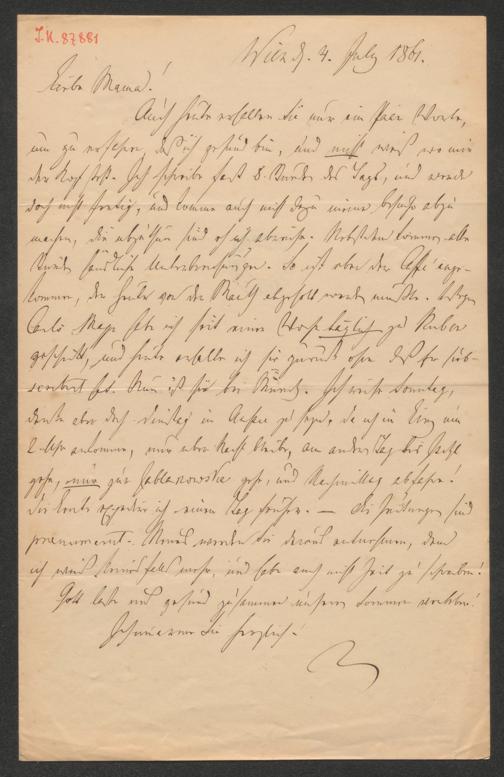 I.N. 87881
Wien d. 4. July 1861.
Liebe Mama!
Auch heute erhalten Sie nur ein Paar Worte,
um zu erfahren, daß ich gesund bin, und nicht weiß wo mir
der Kopf steht. Ich schreibe fast 8 Stunden des Tags, und werde
doch nicht fertig, und komme auch nicht dazu meine Besuche abzu
machen, die abzuthun sind eh ich abreise. Nebstdem kommen alle
Stunden Unterbrechungen. So ist eben der Caffé ange-
kommen, der heute von der Mauth abgeholt werden mußte.
Carls Mapp habe ich seit einer Woche täglich zu
geschickt, und heute erhalte ich sie zurück ohne daß Er sub-
scribirt hat. Nun ist sie bei Münch. Ich reise Sonntag,
denke aber doch Dinstag in Aussee zu sein, da ich in Linz um
2 Uhr ankomme, nur über Nacht bleibe, am andern Tag bis Ischl
gehe, nur zur Jablanowska gehe, und Nachmittag abfahre!
Die Leute expedire ich einen Tag früher. — Die Zeitungen sind
praenumerirt. Mündl. werden Sie daraus entnehmen, denn
ich weiß keinesfalls mehr, und habe auch nicht Zeit zu schreiben!
Gott lasse uns gesund zusammen unsern Sommer verleben!
Ich umarme Sie herzlich!